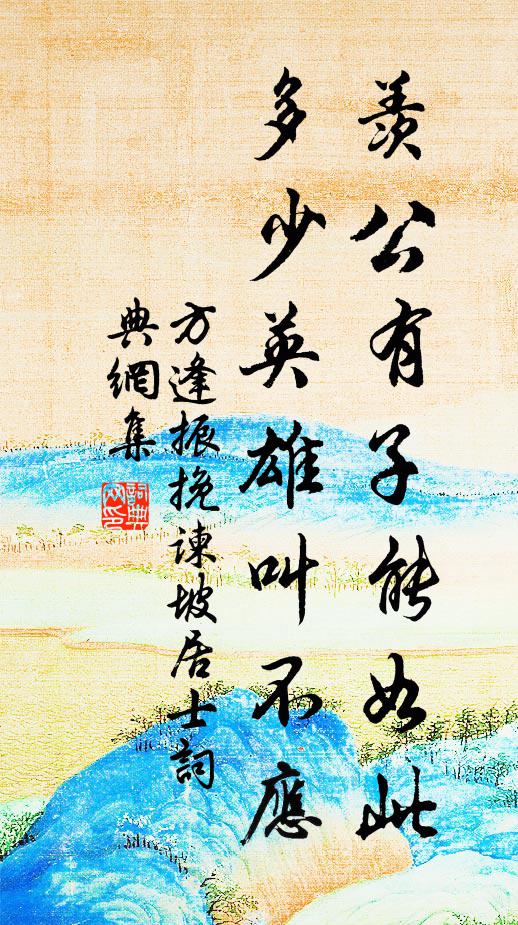 羨公有子能如此
多少英雄叫不應
方逢振挽諫坡居士詞
典網集
詞典網印